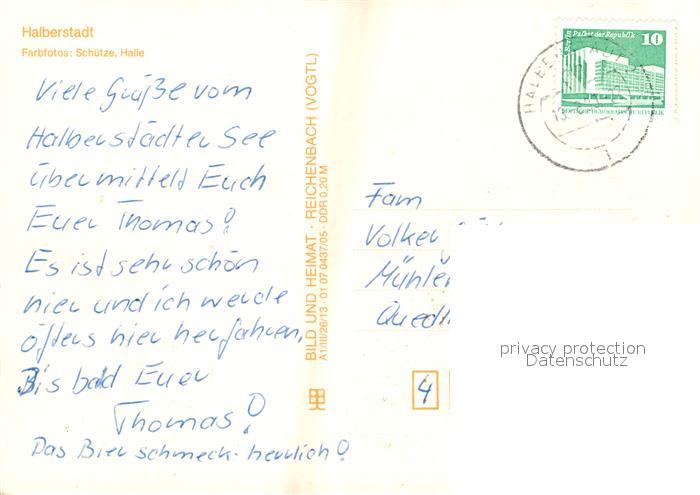 Halberstadt
Farbfotos: Schütze, Halle
Viele Grüße vom
Halberstädter See
übermittelt Euch
Euer Thomas!
Es ist sehr schön
hier und ich werde
öfters hier herfahren.
Bis bald Euer
Thomas!
Das Bier schmeck. herrlich!
BILD UND HEIMAT · REICHENBACH (VOGTL)
A1/III/26/13 · 01 07 0437/05 · DDR 0,20 M
Berlin Palast der Republik 10
DEUTSCHE DEMOKRATISCHE REPUBLIK
HALBE
Fam
Volker
Mühlen
Quedl
4
privacy protection
Datenschutz